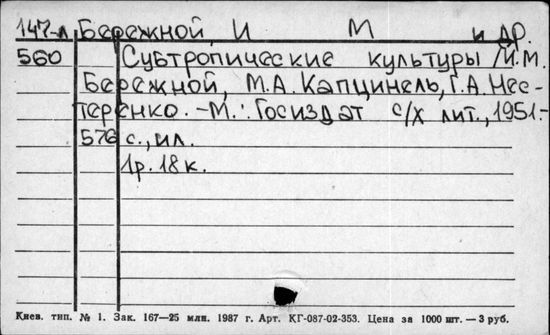 147-л Бережной И М и др.
560 Субтропические культуры /И.М.
Бережной, М.А. Капцинель, Г.А. Нес-
теренко. -М.: Госиздат с/х лит., 1951.-
576 с., ил.
1р. 18к.
Киев. тип. № 1. Зак. 167—25 млн. 1987 г. Арт. КГ-087-02-353. Цена за 1000 шт. — 3 руб.